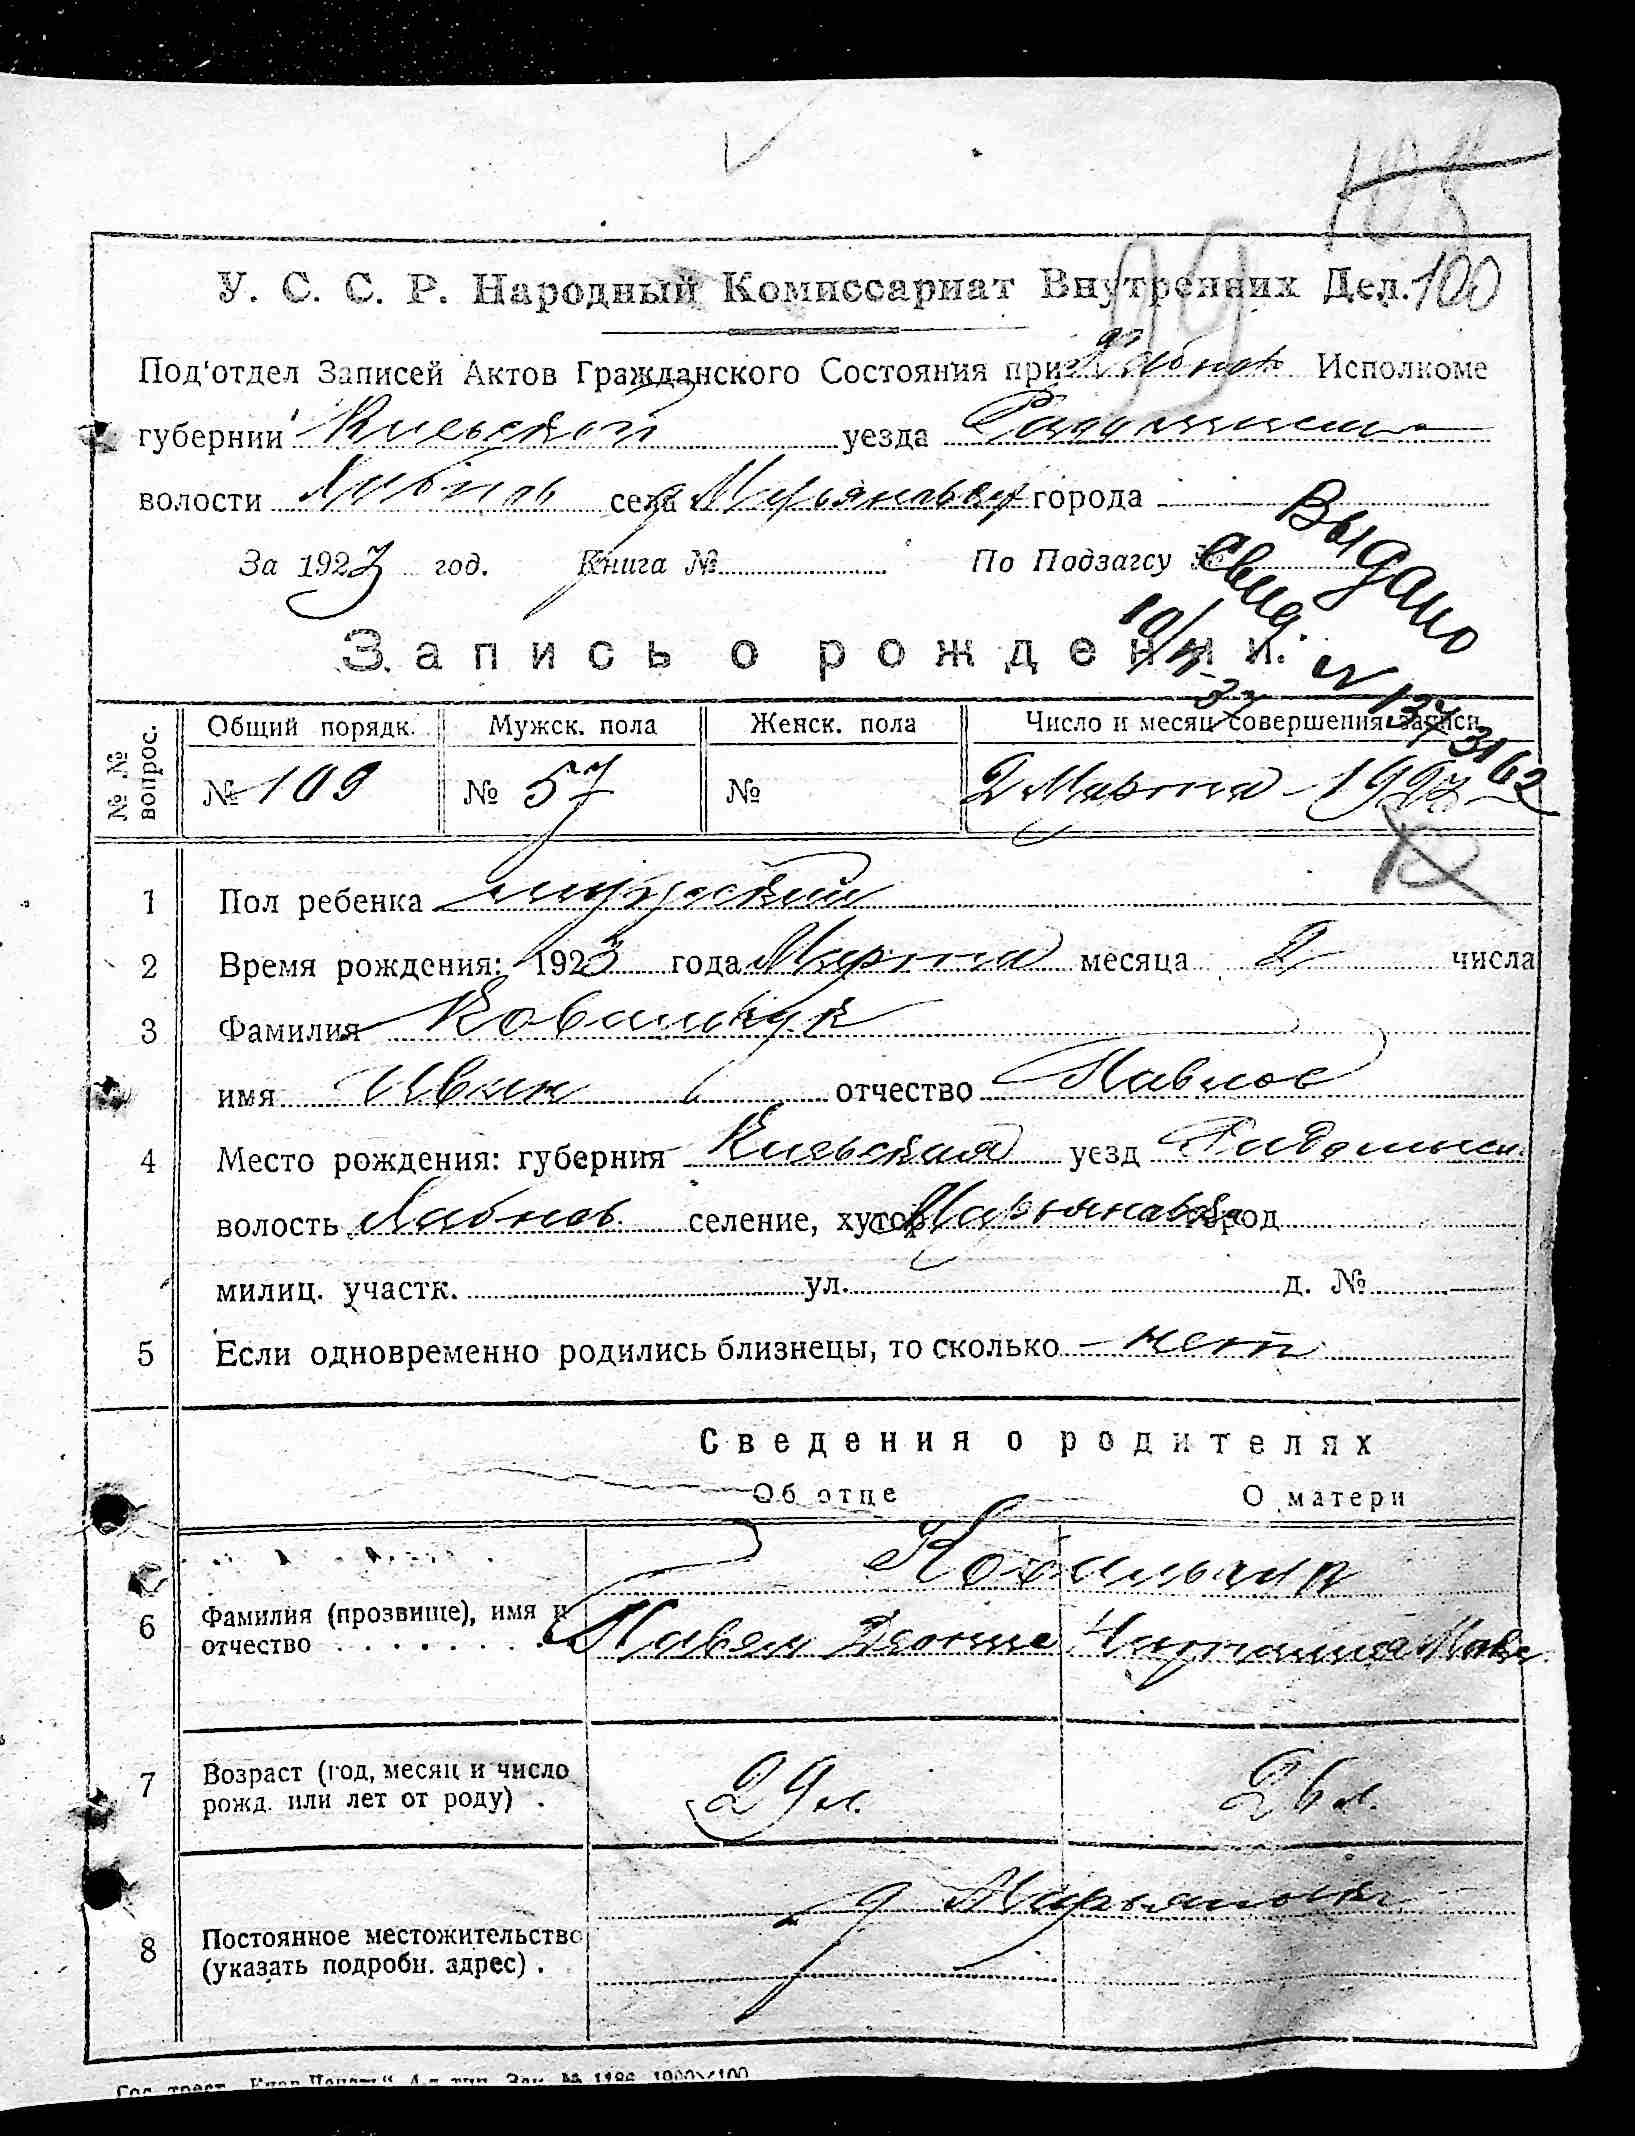 100
У. С. С. Р. Народный Комиссариат Внутренних Дел.
Под'отдел Записей Актов Гражданского Состояния при Хабнов Исполкоме
губернии Киевской уезда Радомысл
волости Хабнов села д Марьяновка города
За 1923 год. Книга № По Подзагсу №
Выдано
свид.
Запись о рождении.
№ № вопрос. Общий порядк. Мужск. пола Женск. пола Число и месяц совершения записи
№ 109 № 57 № 2 Марта 1923
1 Пол ребенка мужской
2 Время рождения: 1923 года Марта месяца 2 числа
3 Фамилия Ковальчук
имя Иван отчество Павлов
4 Место рождения: губерния Киевская уезд Радомысл.
волость Хабнов селение, хутор Марьяновка город
милиц. участк. ул. д. №
5 Если одновременно родились близнецы, то сколько нет
Сведения о родителях
Об отце О матери
Ковальчук
6 Фамилия (прозвище), имя и отчество Павел
7 Возраст (год, месяц и число рожд. или лет от роду) . 29 л. 26 л.
8 Постоянное местожительство (указать подробн. адрес) . д Марьяновка